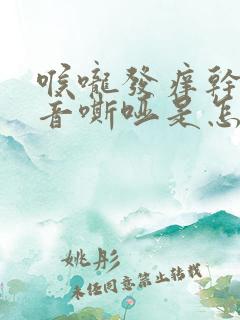 喉嚨發癢幹
音嘶啞是怎
姚彤
未任同意禁止转载